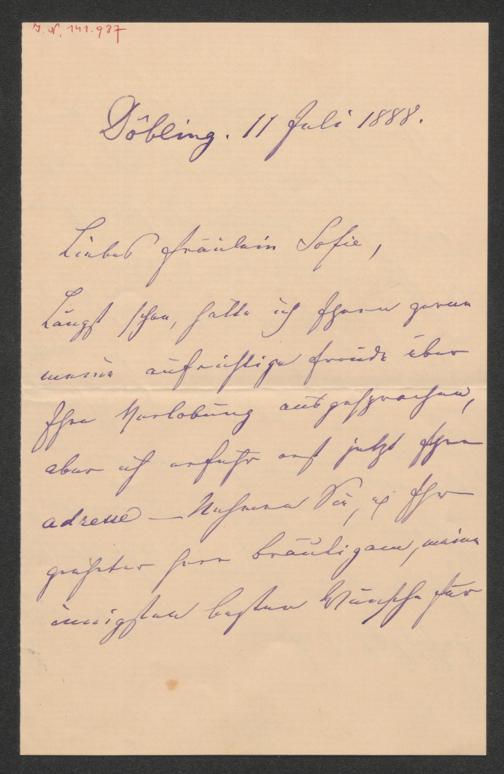 J.N. 141.937
Döbling. 11 Juli 1888.
Liebes Fräulein Sofie,
Längst schon, hätte ich Ihnen gerne
meine aufrichtige Freude über
Ihre Verlobung ausgesprochen,
aber ich erfuhr erst jetzt Ihre
adresse — Nehmen Sie, & Ihr
geehrter Herr Bräutigam, meine
innigsten besten Wünsche für